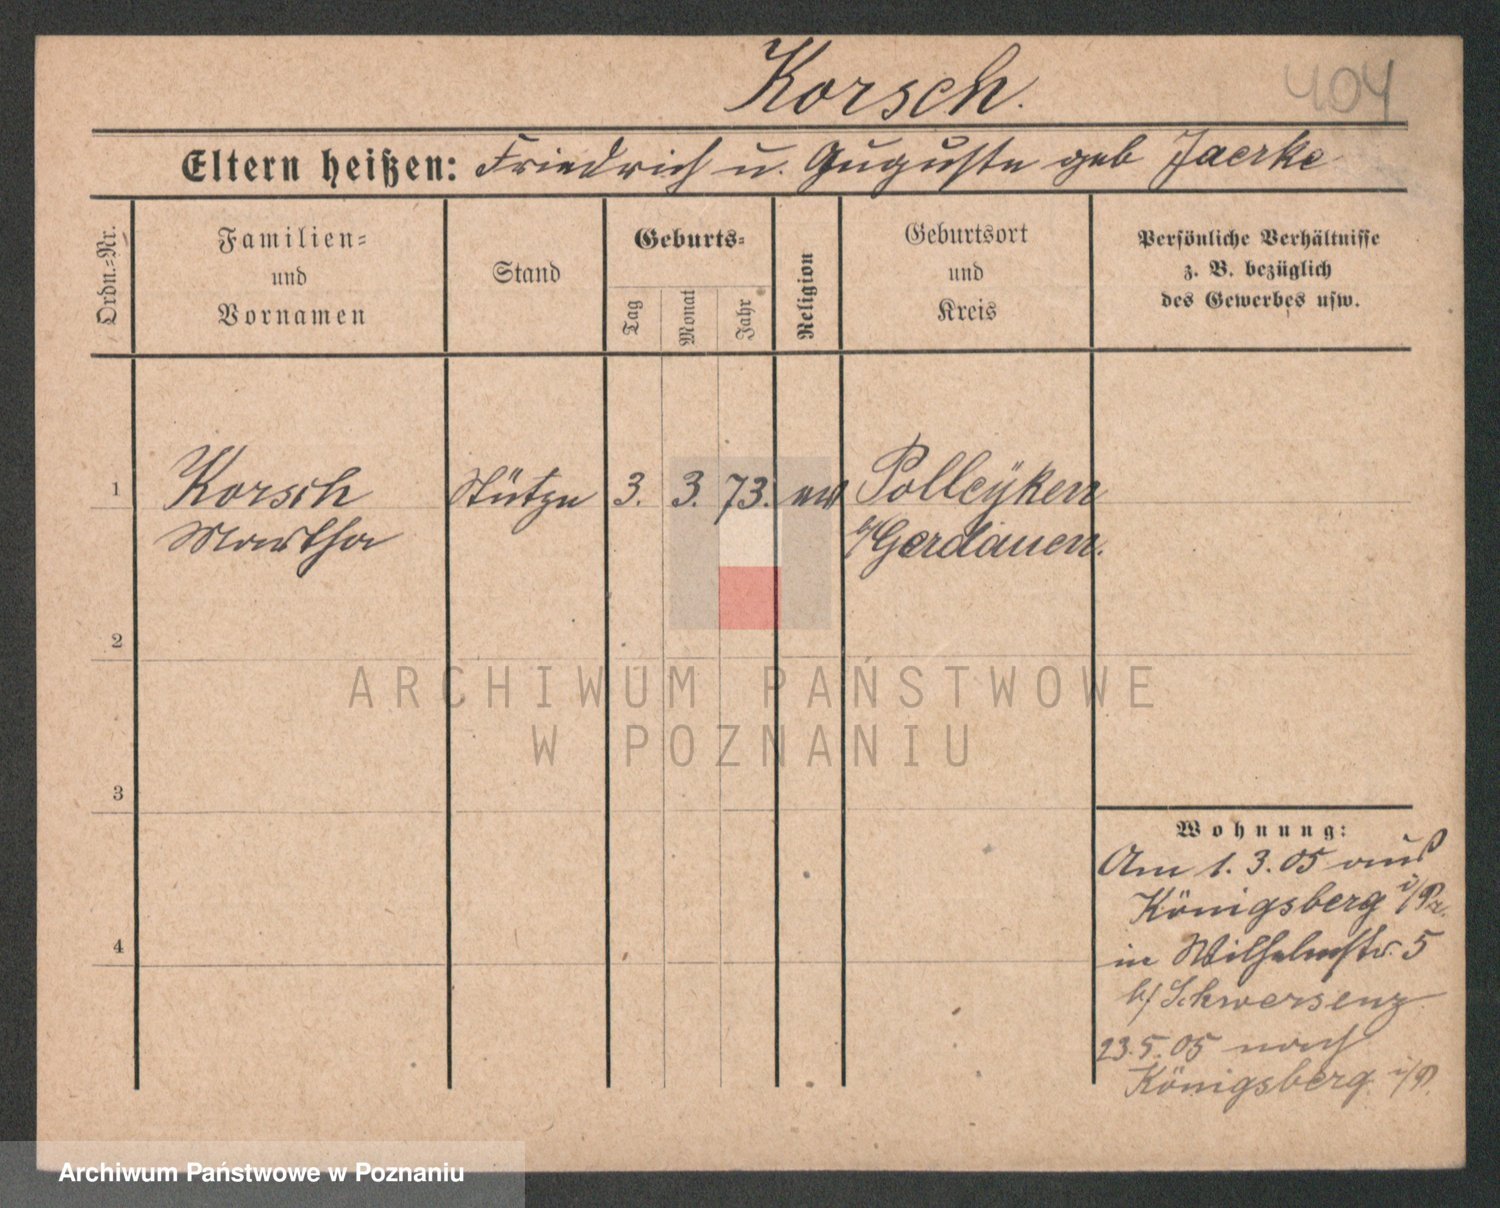 Korsch.
404
Eltern heißen: Friedrich u. Auguste geb Jaerke
Ordn.-Nr.
Familien-
und
Vornamen
Stand
Geburts-
Tag
Monat
Jahr
Religion
Geburtsort
und
Kreis
Persönliche Verhältnisse
z. B. bezüglich
des Gewerbes usw.
1 Korsch Stütze 3. 3. 73. ev Polleyken
Martha b/Gerdauen.
2
ARCHIWUM PAŃSTWOWE
W POZNANIU
3
Wohnung:
Am 1. 3. 05 aus
Königsberg i/Pr.
4
in Wilhelmstr. 5
b/ Schwersenz
23. 5. 05 nach
Königsberg i/P.
Archiwum Państwowe w Poznaniu